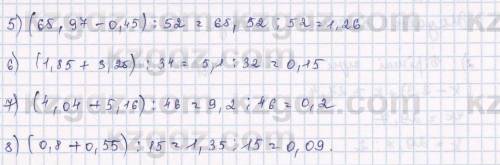 5) (65,97-0,45):52 = 65,52:52=1,26
6) (1,85+3,25):34=5,1:32=0,15
7) (4,04+5,16):46=9,2:46=0,2
8) (0,8+0,55):15=1,35:15=0,09.